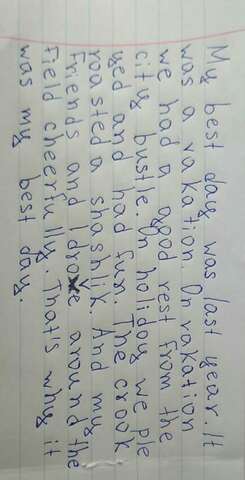 My best day was last year. It
was a vakation. On vakation
we had a good rest from the
city bustle. On holiday we ple
yed and had fun. The crook
roasted a shashlik. And my
Friends and I drove around the
Field cheerfully. That's why it
was my best day.